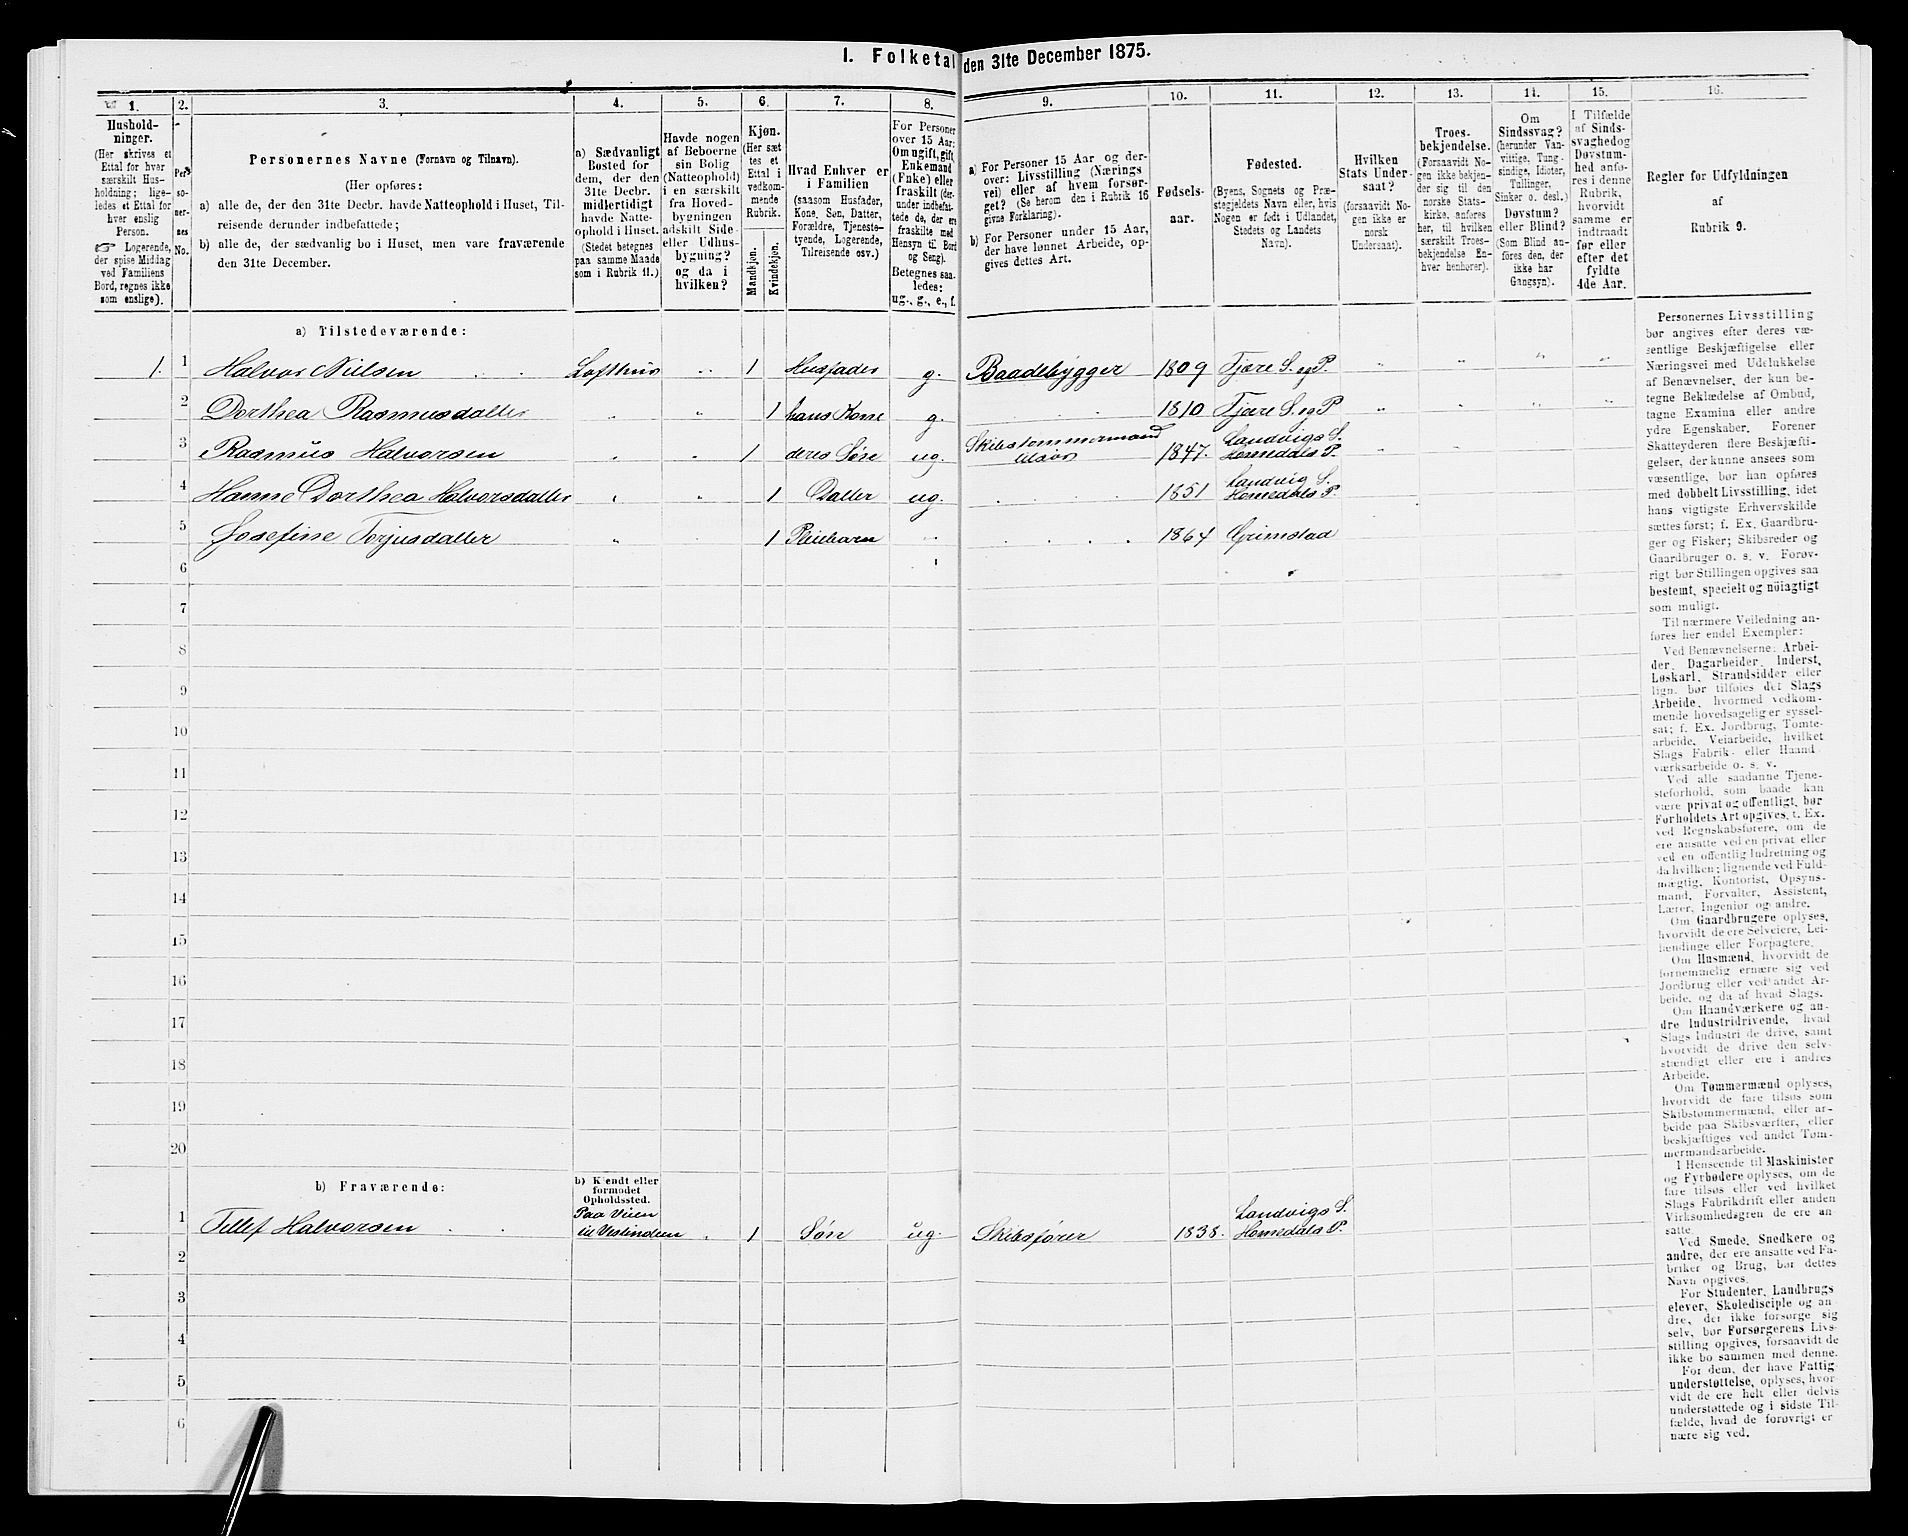 I. Folketal den 31te December 1875.
1.
2.
3.
4.
5.
6.
7.
8.
9.
10.
11.
12.
13.
14.
15.
16.
Hushold-
ninger.
(Her skrives et
Ettal for hver
særskilt Hus-
holdning; lige-
ledes et Ettal for
hver enslig
Person.
☞ Logerende,
der spise Middag
ved Familiens
Bord, regnes ikke
som enslige).
Per-
so-
ner-
nes
No.
Personernes Navne (Fornavn og Tilnavn).
(Her opføres:
a) alle de, der den 31te Decbr. havde Natteophold i Huset, Til-
reisende derunder indbefattede;
b) alle de, der sædvanlig bo i Huset, men vare fraværende
den 31te December.
a) Sædvanligt
Bosted for
dem, der den
31te Decbr.
midlertidigt
havde Natte-
ophold i Huset.
(Stedet betegnes
paa samme Maade
som i Rubrik 11.)
Havde nogen
af Beboerne
sin Bolig
(Natteophold)
i en særskilt
fra Hoved-
bygningen
adskilt Side-
eller Udhus-
bygning?
og da i
hvilken?
Kjøn.
(Her sæt-
tes et
Ettal i
vedkom-
mende
Rubrik.
Mandkjøn.
Kvindekjøn.
Hvad Enhver er
i Familien
(saasom Husfader,
Kone, Søn, Datter,
Forældre, Tjeneste-
tyende, Logerende,
Tilreisende osv.)
For Personer
over 15 Aar:
Om ugift, gift,
Enkemand
(Enke) eller
fraskilt (der-
under indbefat-
tede de, der ere
fraskilte med
Hensyn til Bord
og Seng).
Betegnes saa-
ledes:
ug., g., e., f.
a) For Personer 15 Aar og der-
over: Livsstilling (Nærings
vei) eller af hvem forsør-
get? (Se herom den i Rubrik 16
givne Forklaring).
b) For Personer under 15 Aar,
der have lønnet Arbeide, op-
gives dettes Art.
Fødsels-
aar.
Fødested.
(Byens, Sognets og Præ-
stegjeldets Navn eller, hvis
Nogen er født i Udlandet,
Stedets og Landets
Navn).
Hvilken
Stats Under-
saat?
(forsaavidt No-
gen ikke er
norsk
Undersaat).
Troes-
bekjendelse.
(Forsaavidt No-
gen ikke bekjen-
der sig til den
norske Stats-
kirke, anføres
her, til hvilken
særskilt Troes-
bekjendelse En-
hver henhører).
Om
Sindssvag?
(herunder Van-
vittige, Tung-
sindige, Idioter,
Tullinger,
Sinker o. desl.)
Døvstum?
eller Blind?
(Som Blind an-
føres den, der
ikke har
Gangsyn).
I Tilfælde
af Sinds-
svaghed og
Døvstum-
hed anfø-
res i denne
Rubrik,
hvorvidt
samme er
indtraadt
før eller
efter det
fyldte
4de Aar.
Regler for Udfyldningen
af
Rubrik 9.
a) Tilstedeværende:
1. 1 Halvor Nielsen Lofthus " 1 Husfader g. Baadebygger 1809 Fjære S. og P. " " " "
2 Dorthea Rasmusdatter " " 1 hans Kone g. 1810 Fjære S. og P. " " " "
3 Rasmus Halvorsen " " 1 deres Søn ug. Skibstømmermand
tilsøs 1847. Landvigs S.
Homedals P.
4 Hanne Dorthea Halvorsdatter " " 1 Datter ug. 1851 Landvig S.
Homedals P.
5 Josefine Torjusdatter " 1 Pleiebarn " 1864 Grimstad
6
7
8
9
10
11
12
13
14
15
16
17
18
19
20
b) Fraværende:
b) Kjendt eller
formodet
Opholdssted.
1 Tellef Halvorsen Paa Veien
til Vestindien " 1 Søn ug. Skibsfører 1838. Landvigs S.
Homedals P.
2
3
4
5
6
Personernes Livsstilling
bør angives efter deres væ-
sentlige Beskjæftigelse eller
Næringsvei med Udelukkelse
af Benævnelser, der kun be-
tegne Beklædelse af Ombud,
tagne Examina eller andre
ydre Egenskaber. Forener
Skatteyderen flere Beskjæfti-
gelser, der kunne ansees som
væsentlige, bør han opføres
med dobbelt Livsstilling, idet
hans vigtigste Erhvervskilde
sættes først; f. Ex. Gaardbru-
ger og Fisker; Skibsreder og
Gaardbruger o. s. v. Forøv-
rigt bør Stillingen opgives saa
bestemt, specielt og nöiagtigt
som muligt.
Til nærmere Veiledning an-
føres her endel Exempler:
Ved Benævnelserne: Arbei-
der, Dagarbeider, Inderst,
Løskarl, Strandsidder eller
lign. bør tilføies det Slags
Arbeide, hvormed vedkom-
mende hovedsagelig er syssel-
sat; f. Ex. Jordbrug, Tomte-
arbeide, Veiarbeide, hvilket
Slags Fabrik- eller Haand-
værksarbeide o. s. v.
Ved alle saadanne Tjene-
steforhold, som baade kan
være privat og offentligt, bør
Forholdets Art opgives, t. Ex.
ved Regnskabsførere, om de
ere ansatte ved en privat eller
ved en offentlig Indretning og
da hvilken; lignende ved Fuld-
mægtig, Kontorist, Opsyns-
mand, Forvalter, Assistent,
Lærer, Ingeniør og andre.
Om Gaardbrugere oplyses,
hvorvidt de ere Selveiere, Lei-
lændinge eller Forpagtere.
Om Husmænd, hvorvidt de
fornemmelig ernære sig ved
Jordbrug eller ved andet Ar-
beide, og da af hvad Slags.
Om Haandværkere og an-
dre Industridrivende, hvad
Slags Industri de drive, samt
hvorvidt de drive den selv-
stændigt eller ere i andres
Arbeide.
Om Tømmermænd oplyses,
hvorvidt de fare tilsøs som
Skibstømmermænd, eller ar-
beide paa Skibsværfter, eller
beskjæftiges ved andet Tøm-
mermandsarbeide.
I Henseende til Maskinister
og Fyrbødere oplyses, om de
fare tilsøs eller ved hvilket
Slags Fabrikdrift eller anden
Virksomhedsgren de ere an-
satte.
Ved Smede, Snedkere og
andre, der ere ansatte ved Fa-
briker og Brug, bør dettes
Navn opgives.
For Studenter, Landbrugs-
elever, Skoledisciple og an-
dre, der ikke forsørge sig
selv, bør Forsørgerens Livs-
stilling opgives, forsaavidt de
ikke bo sammen med denne.
For dem, der have Fattig-
understøttelse, oplyses, hvor-
vidt de ere helt eller delvis
understøttede og i sidste Til-
fælde, hvad de forøvrigt er
nære sig ved.